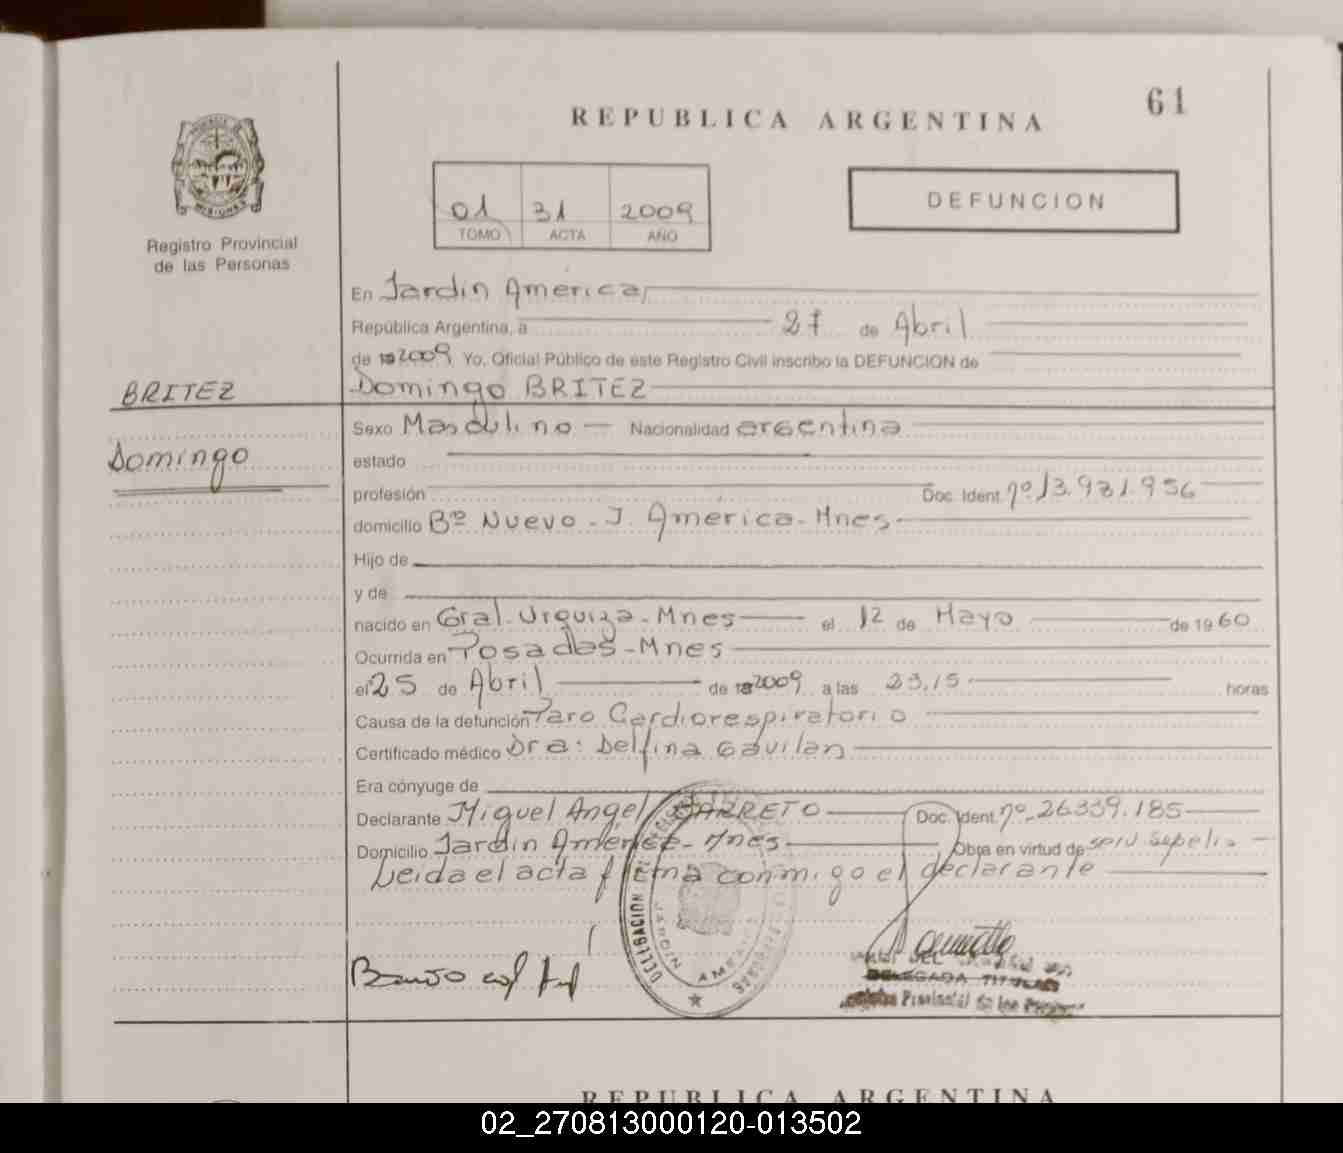 61
REPUBLICA ARGENTINA
MISIONES
Registro Provincial
de las Personas
01 31 2009
TOMO ACTA AÑO
DEFUNCION
En Jardin America
República Argentina, a 27 de Abril
de 2009 Yo, Oficial Público de este Registro Civil inscribo la DEFUNCION de
BRITEZ
Domingo
Domingo BRITEZ
Sexo Masculino Nacionalidad argentina
estado
profesión Doc. Ident. nº 13.981.956
domicilio Bº Nuevo - J. América - Mnes
Hijo de
y de
nacido en Gral. Urquiza - Mnes el 12 de Mayo de 1960
Ocurrida en Posadas - Mnes
el 25 de Abril de 2009 a las 23,15 horas
Causa de la defunción Paro Cardiorespiratorio
Certificado médico Dra: Delfina Gavilan
Era cónyuge de
Declarante Miguel Angel BARRETO Doc. Ident. nº 26339.185
Domicilio Jardin América - Mnes Obra en virtud de serv sepelio
Leida el acta firma conmigo el declarante
DELEGACION DEL
JARDIN AMERICA
DELEGADA TITULAR
Provincial de las
REPUBLICA ARGENTINA
02_270813000120-013502